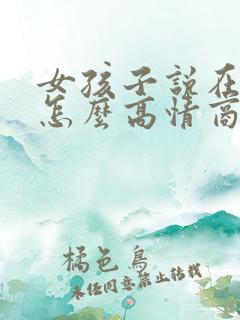 女孩子說在
怎麼高情商
橘色鳥
未经同意禁止转载